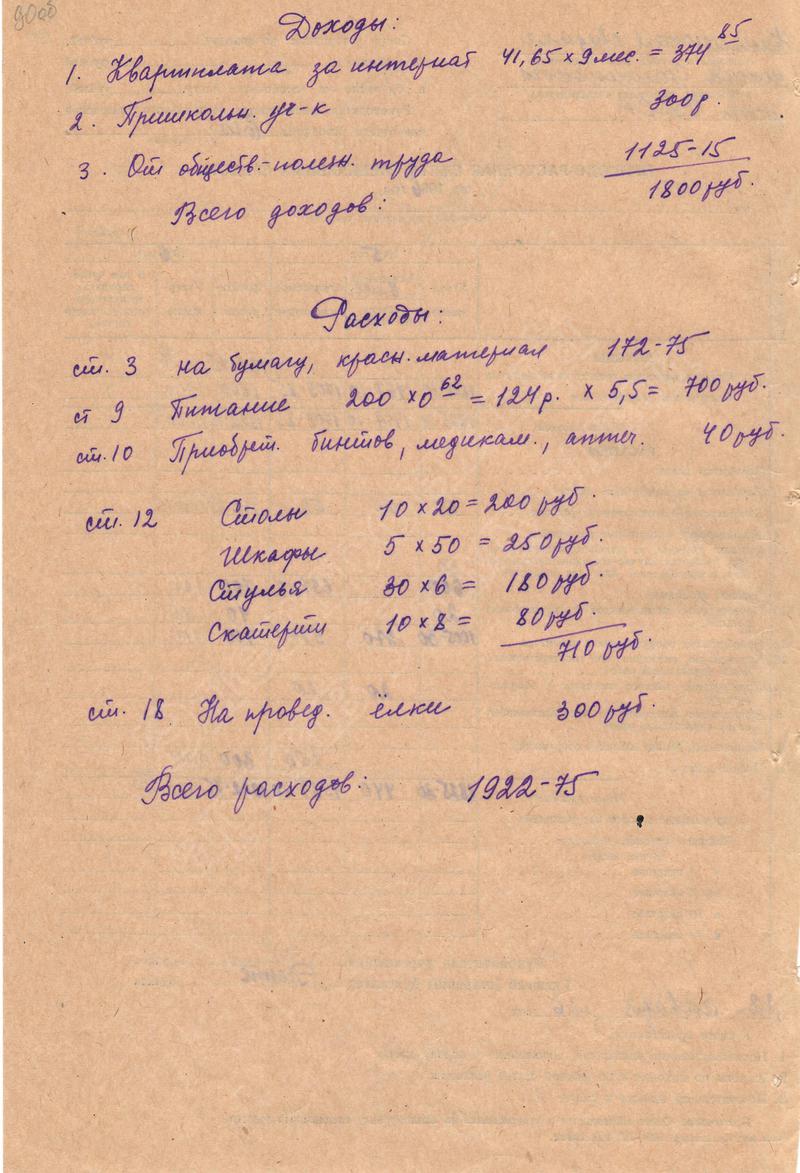 90об
Доходы:
1. Квартплата за интернат 41,65 х 9 мес. = 374 85
2. Пришкольн. уч-к 300 р.
3. От обществ.-полезн. труда 1125-15
Всего доходов: 1800 руб.
Расходы:
ст. 3 на бумагу, красн. материал 172-75
ст 9 Питание 200 х 0 62 = 124 р. х 5,5 = 700 руб.
ст. 10 Приобрет. бинтов, медикам., аптеч. 40 руб.
ст. 12 Столы 10 х 20 = 200 руб.
Шкафы 5 х 50 = 250 руб.
Стулья 30 х 6 = 180 руб.
Скатерти 10 х 8 = 80 руб.
710 руб.
ст. 18 На провед. ёлки 300 руб.
Всего расходов: 1922-75